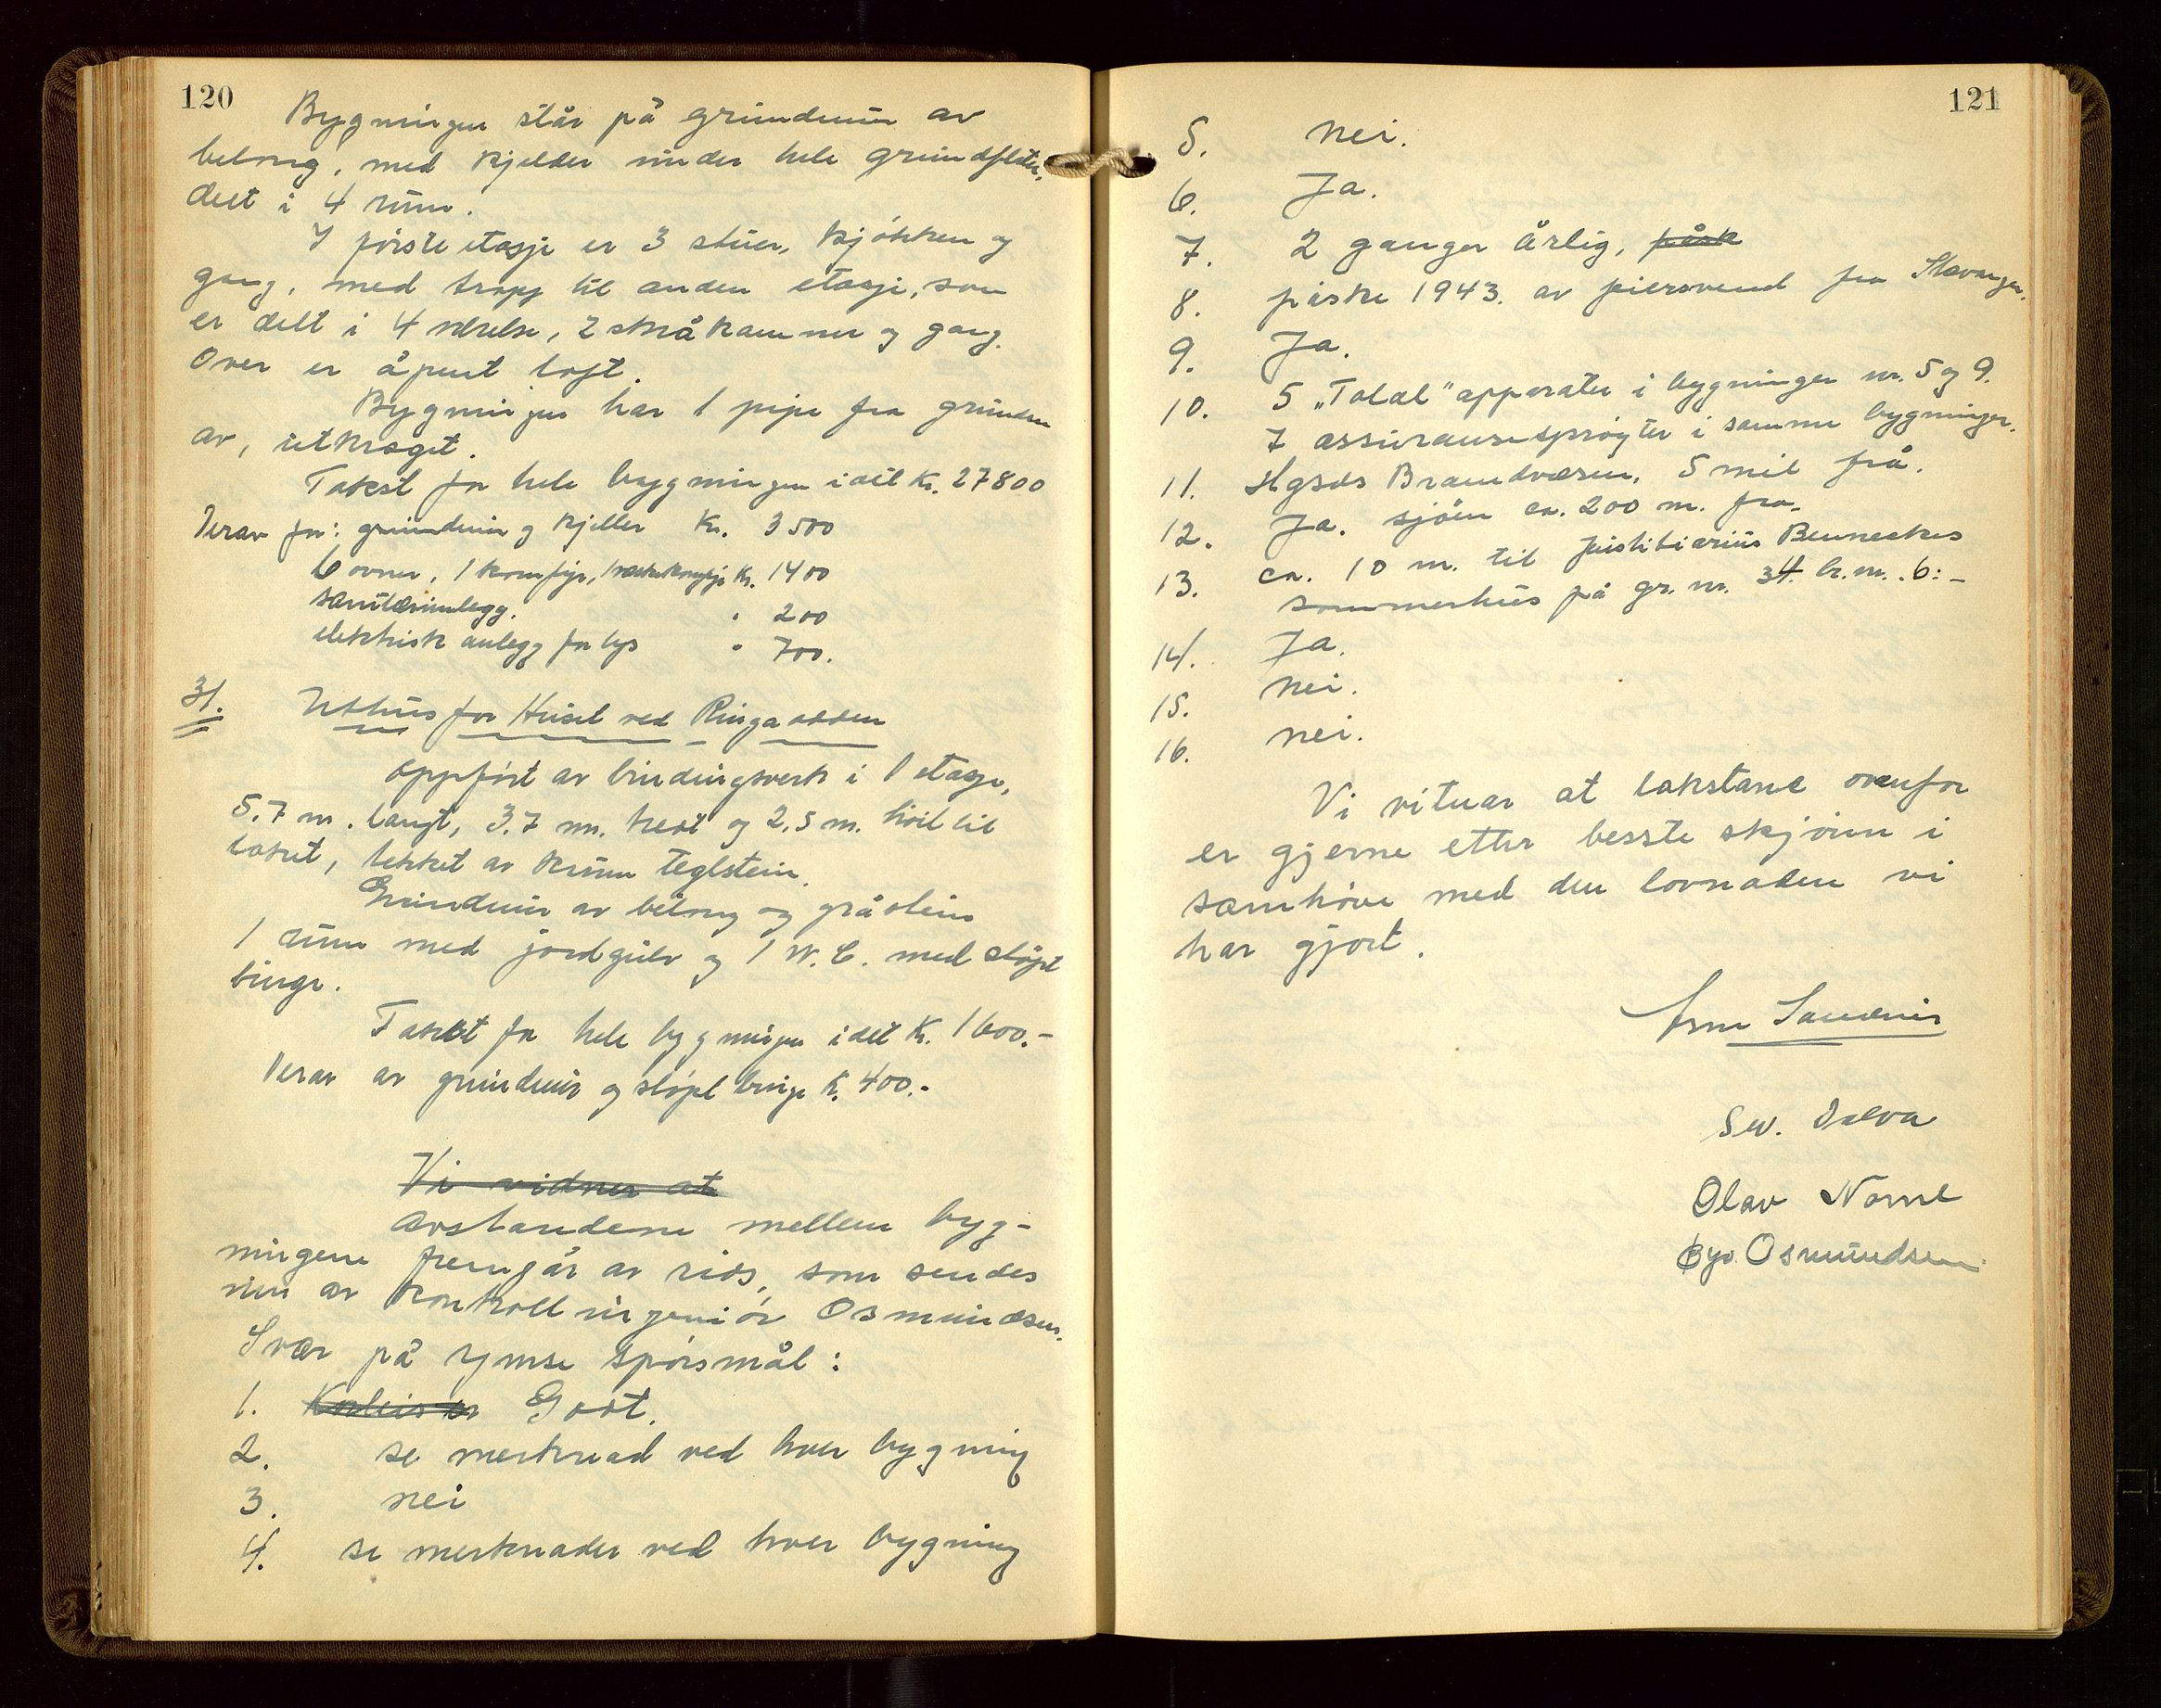 120
Bygningen står på grundmur av
betong, med kjelder under hele grundflaten,
delt i 4 rum.
I første etasje er 3 stuer, kjøkken og
gang, med trapp til anden etasje, som
er delt i 4 værelse, 2 skråkammer og gang.
Over er åpent loft.
Bygningen har 1 pipe fra grunden
av, utkraget.
Takst for hele bygningen i alt Kr. 27800
Derav for: grundmur og kjeller Kr. 3500
6 ovner, 1 komfyr, 1 vaskekomfyr Kr. 1400
sanitærinlegg. " 200
elektrisk anlegg for lys " 700.
31. Uthus for Huset ved Ringaodden
oppført av bindingsverk i 1 etasje,
5.7 m. langt, 3.7 m. bredt og 2.5 m. høit til
taket, tekket av krum teglstein.
Grundmur av betong og gråstein
1 rum med jordgulv og 1 W.C. med støpt
binge.
Takst for hele bygningen i alt K. 1600.-
Derav av grundmur og støpt binge K. 400.-
Vi vidner at
Avstandene mellem byg-
ningene fremgår av rids, som sendes
inn av kontrollingeniør Osmundsen.
Svar på ymse spørsmål:
1. Korleis er Godt.
2. se merknad ved hver bygning
3. nei
4. se merknader ved hver bygning
121
5. Nei.
6. Ja.
7. 2 ganger årlig, påsk
8. påske 1943. av feiersvend fra Stavanger.
9. Ja.
10. 5 „Total" apparater i bygninger nr. 5 og 9.
7 assuransesprøyter i samme bygninger.
11. Brandvæsen, 5 mil frå.
12. Ja. sjöen ca. 200 m. fra.
13. ca. 10 m. til justitiarius Benneches
sommerhus på gr. nr. 34. br. nr. 6:-
14. Ja.
15. nei.
16. nei.
Vi vitnar at takstane ovenfor
er gjerne etter besste skjønn i
samhøve med den lovnaden vi
har gjort.
Olav
Osmundsen